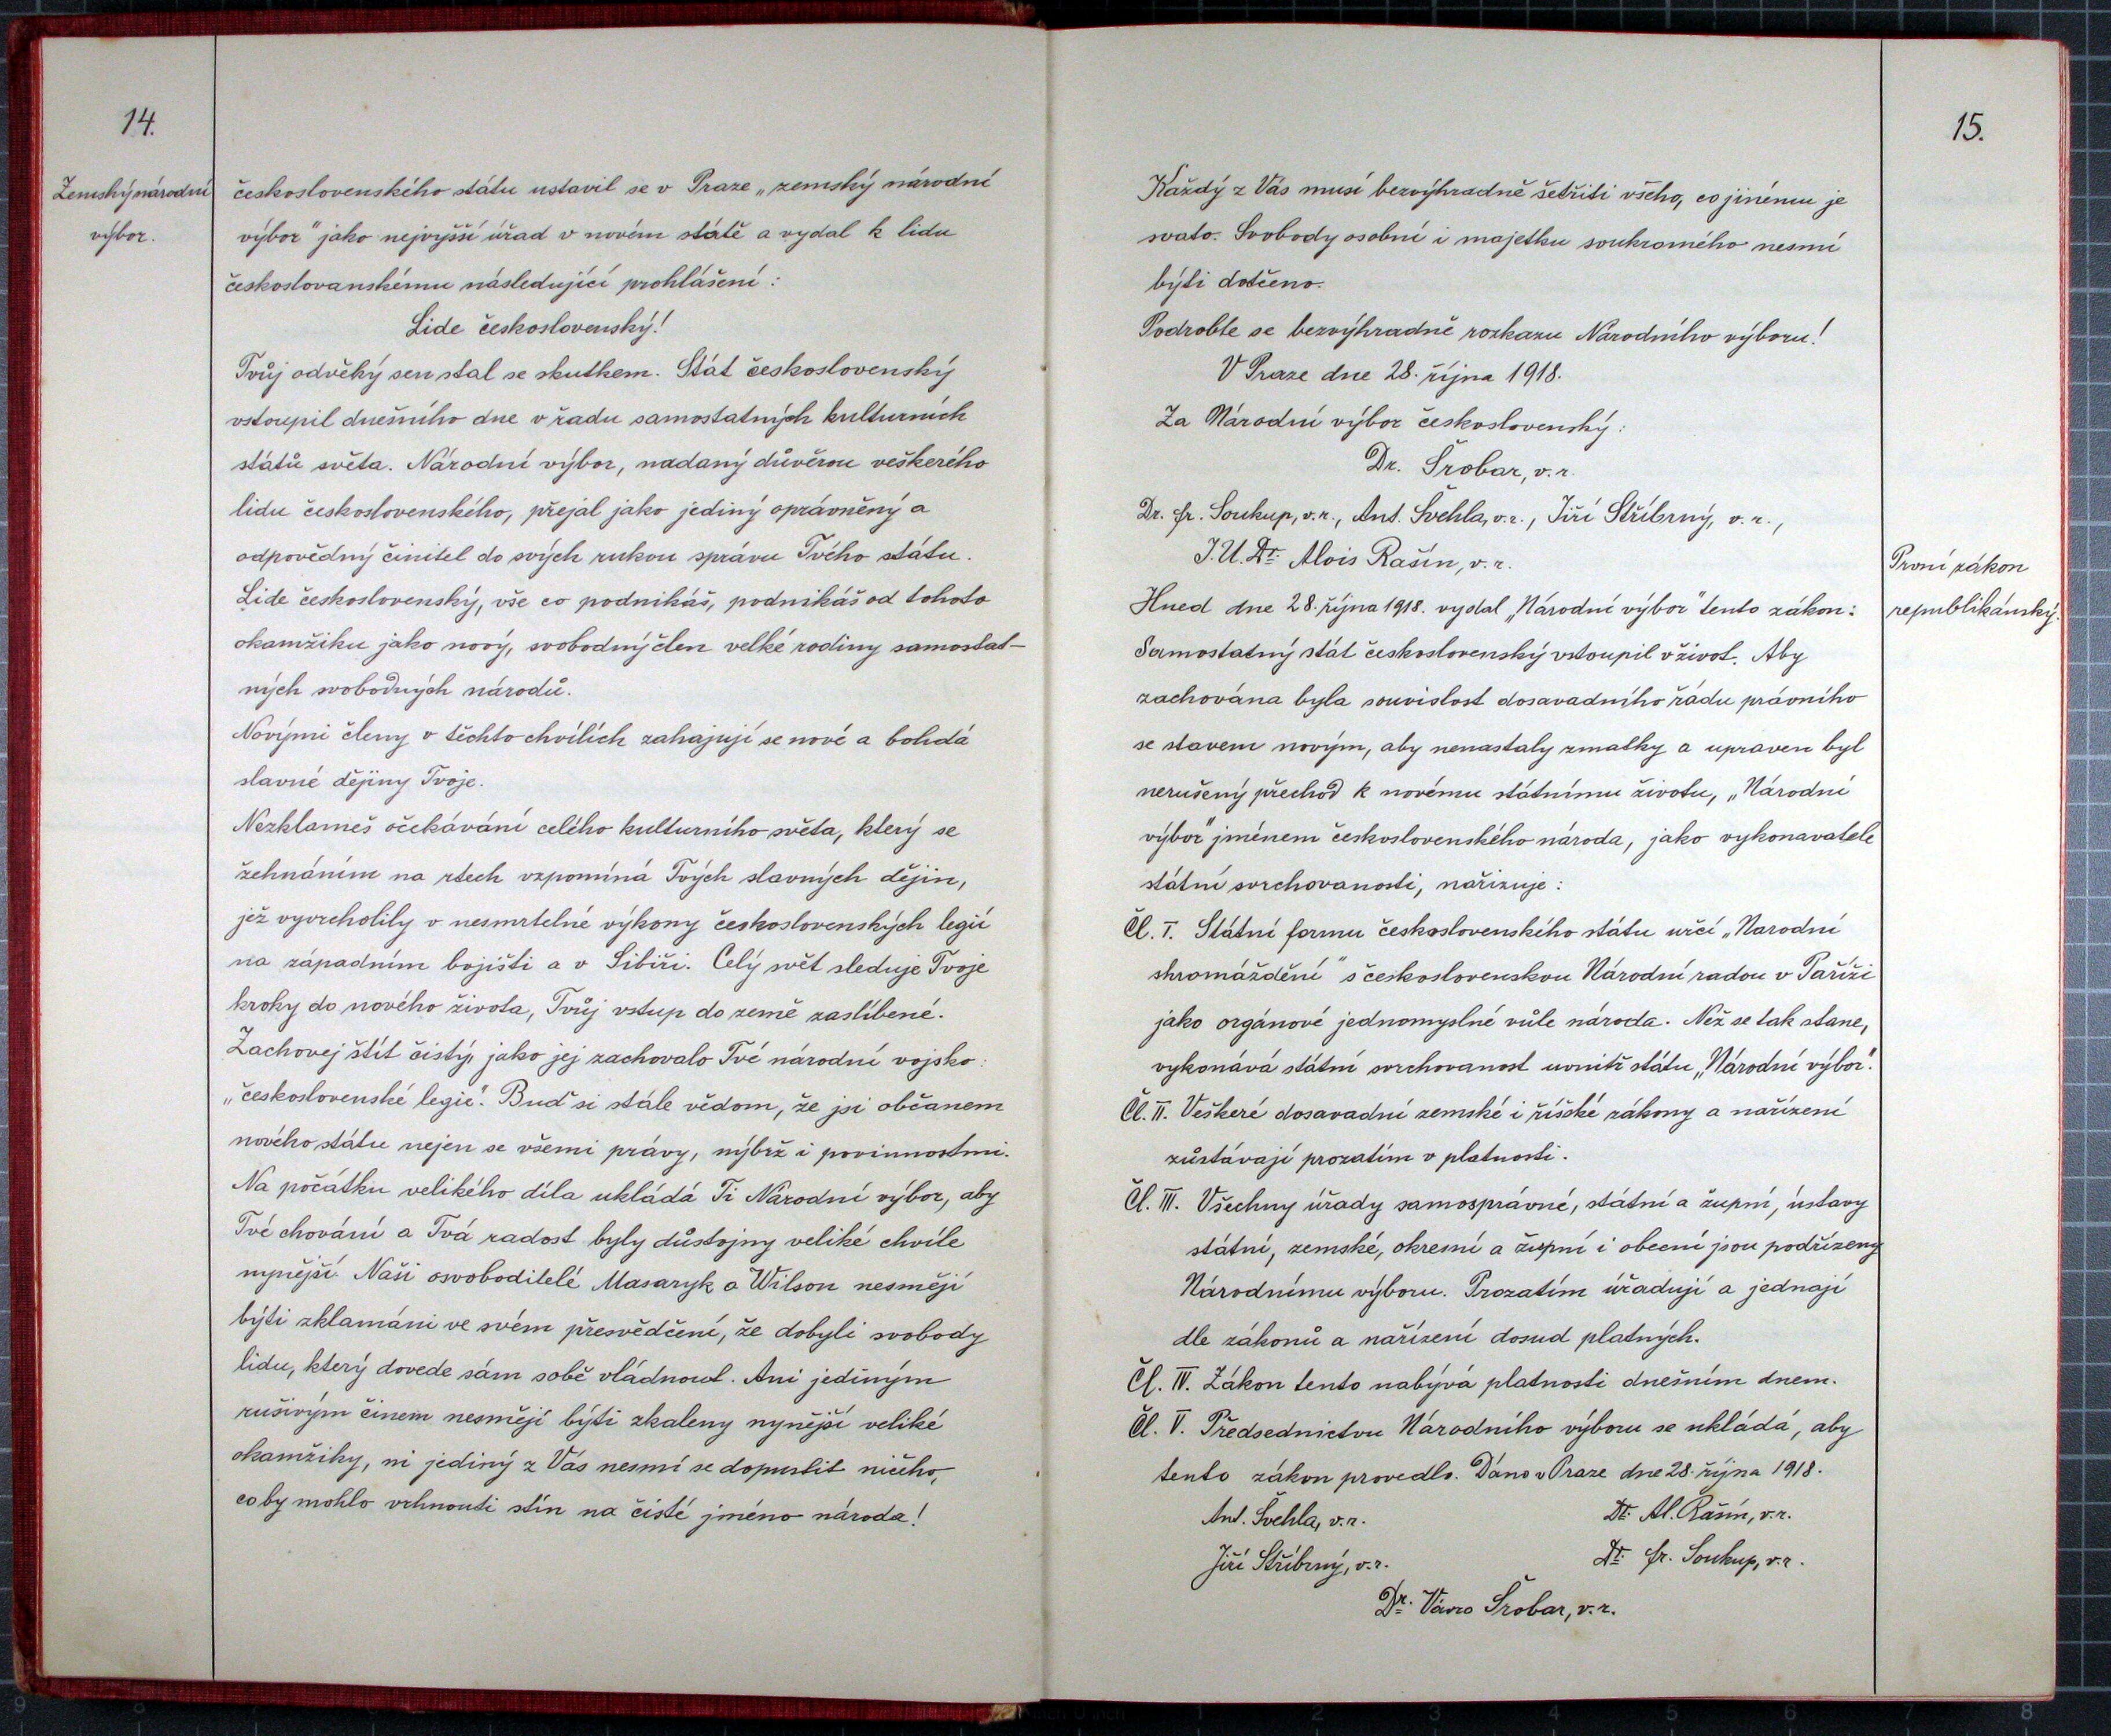 14.
Zemský národní
výbor.
československého státu ustavil se v Praze „zemský národní
výbor" jako nejvyšší úřad v novém státě a vydal k lidu
českoslovanskému následující prohlášení:
Lide československý!
Tvůj odvěký sen stal se skutkem. Stát československý
vstoupil dnešního dne v řadu samostatných kulturních
států světa. Národní výbor, nadaný důvěrou veškerého
lidu československého, přejal jako jediný oprávněný a
odpovědný činitel do svých rukou správu Tvého státu.
Lide československý, vše co podnikáš, podnikáš od tohoto
okamžiku jako nový, svobodný člen velké rodiny samostat-
ných svobodných národů.
Novými členy v těchto chvílích zahajují se nové a bohdá
slavné dějiny Tvoje.
Nezklameš očekávání celého kulturního světa, který se
žehnáním na rtech vzpomíná Tvých slavných dějin,
jež vyvrcholily v nesmrtelné výkony československých legií
na západním bojišti a v Sibiři. Celý svět sleduje Tvoje
kroky do nového života, Tvůj vstup do země zaslíbené.
Zachovej štít čistý, jako jej zachovalo Tvé národní vojsko:
„československé legie". Buď si stále vědom, že jsi občanem
nového státu nejen se všemi právy, nýbrž i povinnostmi.
Na počátku velikého díla ukládá Ti Národní výbor, aby
Tvé chování a Tvá radost byly důstojny veliké chvíle
nynější. Naši osvoboditelé Masaryk a Wilson nesmějí
býti zklamáni ve svém přesvědčení, že dobyli svobody
lidu, který dovede sám sobě vládnout. Ani jediným
rušivým činem nesmějí býti zkaleny nynější veliké
okamžiky, ni jediný z Vás nesmí se dopustit ničeho,
co by mohlo vrhnouti stín na čisté jméno národa!
15.
Každý z Vás musí bezvýhradně šetřiti všeho, co jinému je
svato. Svobody osobní i majetku soukromého nesmí
býti dotčeno.
Podrobte se bezvýhradně rozkazu Národního výboru!
V Praze dne 28. října 1918.
Za Národní výbor československý:
Dr. Šrobar, v. r.
Dr. Fr. Soukup, v. r., Ant. Švehla, v. r., Jiří Stříbrný, v. r.,
J. U. Dr. Alois Rašín, v. r.
První zákon
republikánský.
Hned dne 28. října 1918. vydal „Národní výbor" tento zákon:
Samostatný stát československý vstoupil v život. Aby
zachována byla souvislost dosavadního řádu právního
se stavem novým, aby nenastaly zmatky a upraven byl
nerušený přechod k novému státnímu životu, „Národní
výbor" jménem československého národa, jako vykonavatele
státní svrchovanosti, nařizuje:
Čl. I. Státní formu československého státu určí „Narodní
shromáždění" s československou Národní radou v Paříži
jako orgánové jednomyslné vůle národa. Než se tak stane,
vykonává státní svrchovanost uvnitř státu „Národní výbor".
Čl. II. Veškeré dosavadní zemské i říšské zákony a nařízení
zůstávají prozatím v platnosti.
Čl. III. Všechny úřady samosprávné, státní a župní, ústavy
státní, zemské, okresní a župní i obecní jsou podřízeny
Národnímu výboru. Prozatím úřadují a jednají
dle zákonů a nařízení dosud platných.
Čl. IV. Zákon tento nabývá platnosti dnešním dnem.
Čl. V. Předsednictvu Národního výboru se ukládá, aby
tento zákon provedlo. Dáno v Praze dne 28. října 1918.
Ant. Švehla, v. r. Dr. Al. Rašín, v. r.
Jiří Stříbrný, v. r. Dr. Fr. Soukup, v. r.
Dr. Vávro Šrobar, v. r.